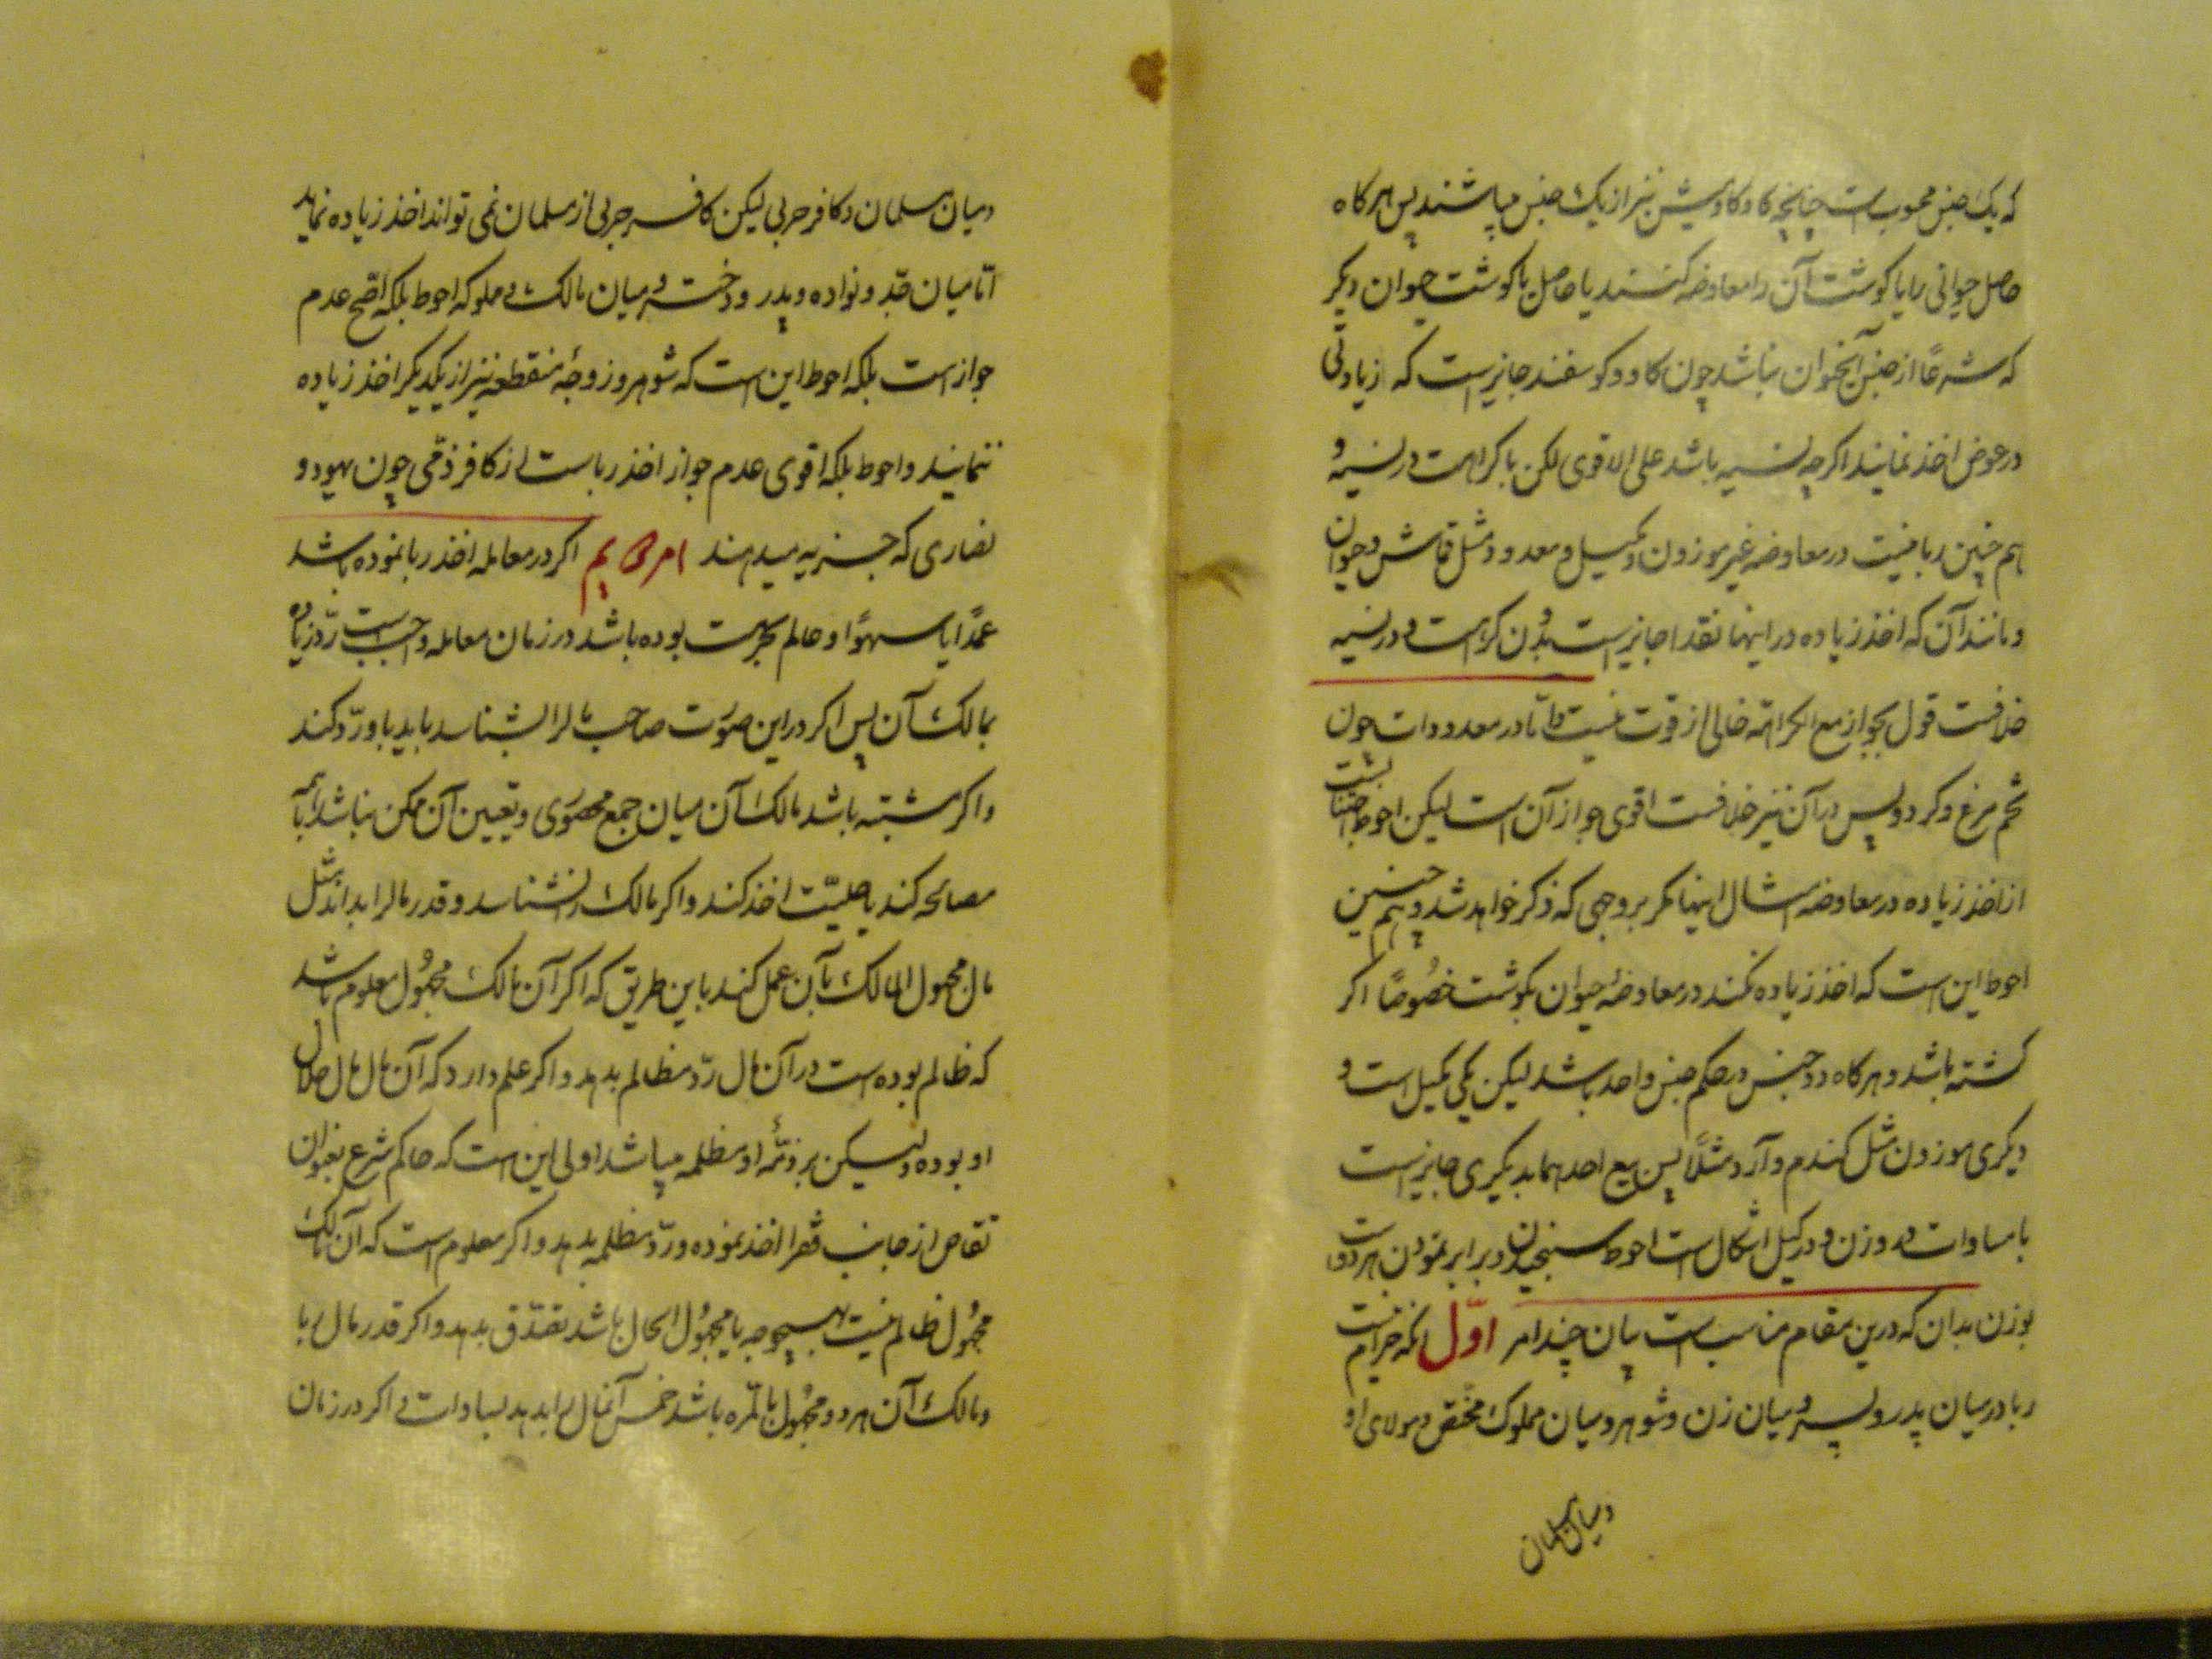 که یک جنس محسوبست چنانچه کاو وکاومیش نیز از یک جنس میباشند پس هرکاه
حاصل حیوانی را باکوشت آن معاوضه کنند یا حاصل یا کوشت حیوان دیکر
که شرعًا از جنس آنحیوان نباشد چون کاو وکوسفند جایز است که زیادتی
در عوض اخذ نمایند اکرچه نسیه باشد علی الاقوی لکن باکراهت در نسیه و
هم چنین ربا نیست در معاوضه غیر موزون و مکیل و معدود مثل قماش و حیوان
و مانند آن که اخذ زیاده در اینها نقدا جایز است بدُون کراهت و در نسیه
خلافست قول بجواز مع الکراهة خالی از قوت نیست و امّا در معدودات چون
تخم مرغ و کردو پس در آن نیز خلافست اقوی جواز آن است لیکن احوط اجتنابست
از اخذ زیاده در معاوضه امثال اینها مکر بر وجهی که ذکر خواهد شد و هم چنین
احوط این است که اخذ زیاده نکند در معاوضهٔ حیوان بکوشت خصُوصًا اکر
کشته باشد و هرکاه دو جنس در حکم جنس واحد باشد لیکن یکی مکیل است و
دیکری موزون مثل کندم و آرد مثلًا پس بیع احدهما بدیکری جایز است
با مساوات در وزن و در کیل اشکال است احوط سنجیدن و برابر نمودن هر دو است
بوزن بدان که درین مقام مناسب است بیان چند امر اوّل آنکه حرام نیست
ربا در میان پدر و پسر و میان زن و شوهر و میان مملوک مختص و مولای او
و میان مسلمان
و میان مسلمان و کافر حربی لیکن کافر حربی از مسلمان نمی تواند اخذ زیاده نماید
امّا میان جد و نواده و پدر و دختر و میان مالک و مملوکه احوط بلکه اصحّ عدم
جواز است بلکه احوط این است که شوهر و زوجهٔ منقطعه نیز از یکدیکر اخذ زیاده
ننمایند و احوط بلکه اقوی عدم جواز اخذ ربا است از کافر ذمّی چون یهود و
نصاری که جزیه میدهند امر دویم اکر در معامله اخذ ربا نموده باشد
عمدًا یا سهوًا و عالم بحرمت بوده باشد در زمان معامله واجب است ردّ زیاده
بمالک آن پس اکر در این صورَت صاحب مال را بشناسد باید باو ردّ کند
و اکر مشتبه باشد مالک آن میان جمع محصوَری و تعیین آن ممکن نباشد با همه
مصالحه کند یا حلیّت اخذ کند و اکر مالک را نشناسد و قدر مال را بداند مثل
مال مجهول المالک بآن عمل کند باین طریق که اکر آن مالک مجهُول معلوم باشد
که ظالم بوده است در آن مال ردّ مظالم بدهد و اکر علم دارد که آن مال مال حلال
او بوده و لیکن بر ذمّهٔ او مظلمه میباشد اولی این است که حاکم شرع بعنوان
تقاص از جانب فقرا اخذ نموده و ردّ مظلمه بدهد و اکر معلوم است که آن مالک
مجهُول ظالم نیست بهیچوجه یا مجهُول الحال باشد تصدّق بدهد و اکر قدر مال ربا
و مالک آن هر دو مجهُول بالمّره باشد خمس آنمال را بدهد بسادات و اکر در زمان